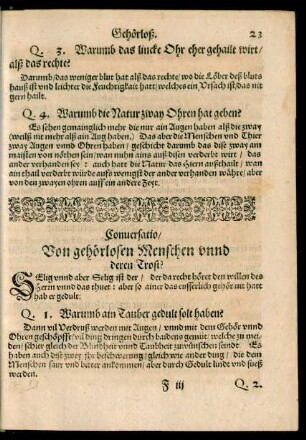 Gehörloß. 23
Q. 3. Warumb das lincke Ohr eher gehailt wirt/
alß das rechte?
Darumb/das weniger blut hat alß das rechte/wo die Löber deß bluts
hauß ist vnd leichter die Feuchtigkait hatt/welches ein Vrsach ist/das nit
gern hailt.
Q. 4. Warumb die Natur zway Ohren hat geben?
Es sehen gemainglich mehr die nur ain Augen haben alß die zway
(weilß nit mehr alß ain Aug haben.) Das aber die Menschen vnd Thier
zway Augen vnnd Ohren haben/ geschicht darumb das dise zway am
maisten von nöthen sein/wan nuhn ains auß disen verderbt wirt / das
ander verhanden sey: auch hatt die Natur das Hern außthailt / wan
ain thail verderbt würde aufs wenigst der ander verhanden währe/ aber
von den zwayen ohren auff ein andere Zeyt.
Conuersatio/
Von gehörlosen Menschen vnnd
deren Trost?
SElig vnnd aber Selig ist der / der da recht höret den willen des
Herrn vnnd das thuet: aber so ainer das eusserlich gehör nit hatt
hab er gedult.
Q. 1. Warumb ain Tauber gedult solt haben?
Dann vil Verdruß werden mit Augen/ vnnd mit dem Gehör vnnd
Ohren geschöpfft/ vil ding dringen durch baidens gemüt/ welche zu mei-
den/ schier gleich der Blindheit vnnd Taubheit zu wünschen seindt. Es
haben auch dise zwey ihr beschwerung/gleich wie ander ding/ die dem
Menschen saur vnd bitter ankommen/ aber durch Gedult linde vnd süeß
werden.
F iij Q. 2.